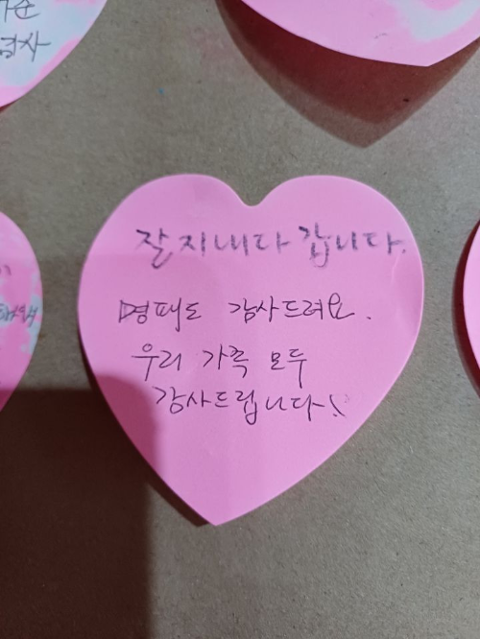 잘 지내다 갑니다.
명패도 감사드려요.
우리 가족 모두
감사드립니다!!